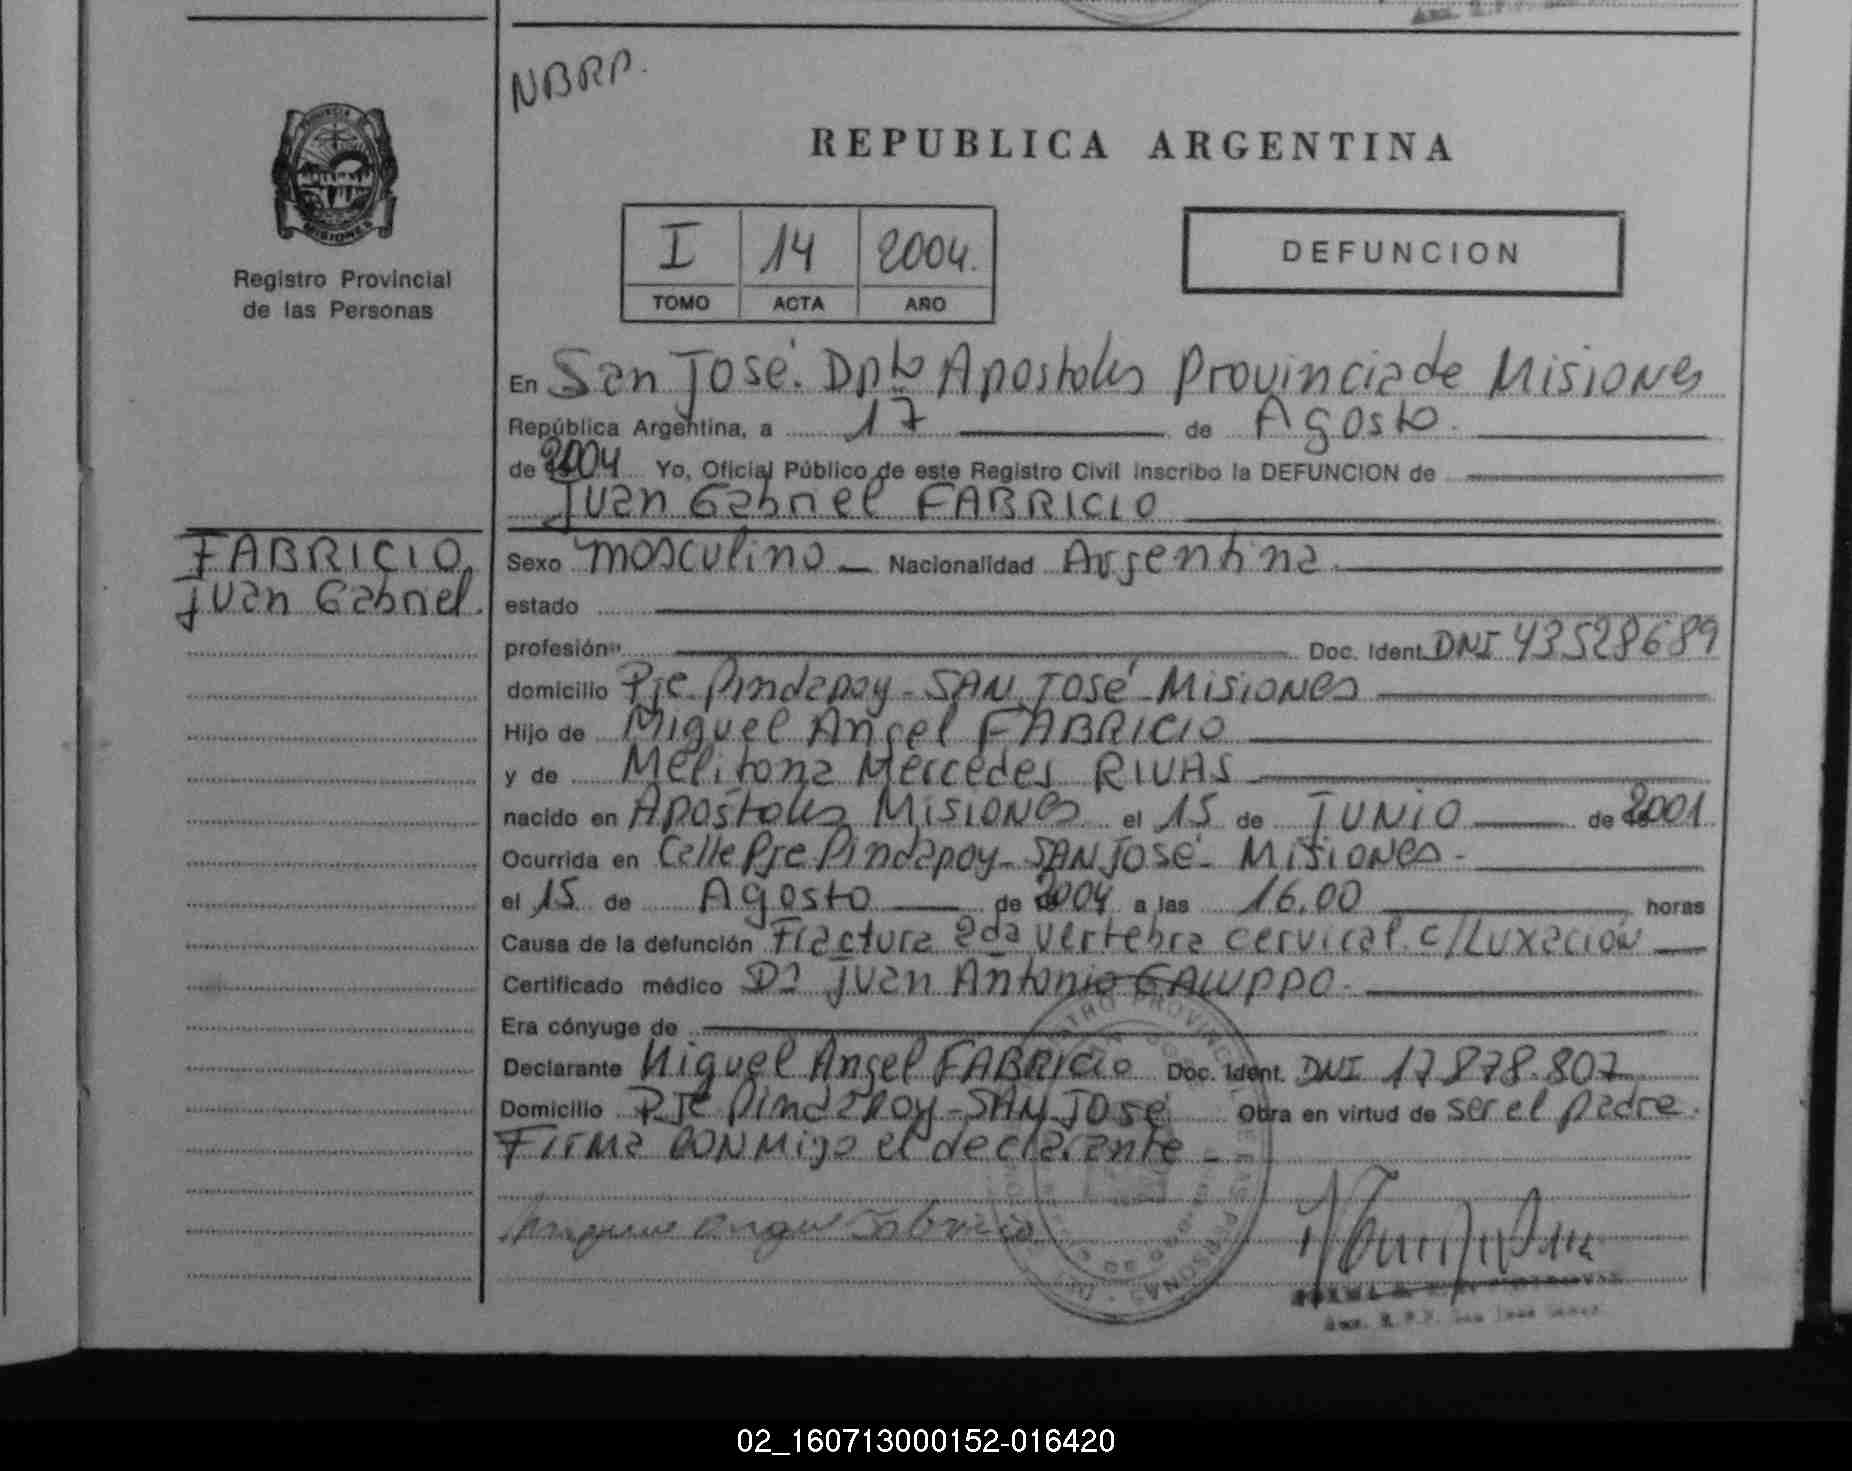 NBRP.
PROVINCIA
MISIONES
Registro Provincial
de las Personas
REPUBLICA ARGENTINA
I 14 2004.
TOMO ACTA AÑO
DEFUNCION
En San José. Dpto Apostoles Provincia de Misiones
República Argentina, a 17 de Agosto.
de 2004 Yo, Oficial Público de este Registro Civil inscribo la DEFUNCION de
Juan Gabriel FABRICIO
FABRICIO,
Juan Gabriel.
Sexo masculino Nacionalidad Argentina
estado
profesión Doc. Ident. DNI 43528689
domicilio Pje. Pindapoy - SAN José - Misiones
Hijo de Miguel Angel FABRICIO
y de Melitona Mercedes RIVAS
nacido en Apostoles Misiones el 15 de JUNIO de 2001
Ocurrida en Calle Pje Pindapoy - SAN José - Misiones -
el 15 de Agosto de 2004 a las 16,00 horas
Causa de la defunción Fractura 2da vertebra cervical c/Luxación
Certificado médico Dr Juan Antonio GALUPPO.
Era cónyuge de
Declarante Miguel Angel FABRICIO Doc. Ident. DNI 17878.807
Domicilio Pje Pindapoy - SAN José Obra en virtud de ser el padre.
Firma CONMigo el declarante -
02_160713000152-016420